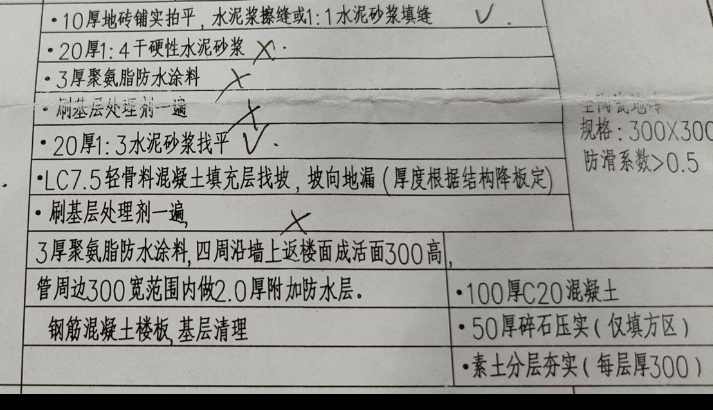 ·10厚地砖铺实拍平，水泥浆擦缝或1:1水泥砂浆填缝
·20厚1:4干硬性水泥砂浆
·3厚聚氨脂防水涂料
·刷基层处理剂一遍
·20厚1:3水泥砂浆找平
规格:300X300
防滑系数>0.5
·LC7.5轻骨料混凝土填充层找坡，坡向地漏(厚度根据结构降板定)
·刷基层处理剂一遍,
3厚聚氨脂防水涂料,四周沿墙上返楼面成活面300高,
管周边300宽范围内做2.0厚附加防水层。
·100厚C20混凝土
钢筋混凝土楼板,基层清理
·50厚碎石压实(仅填方区)
·素土分层夯实(每层厚300)